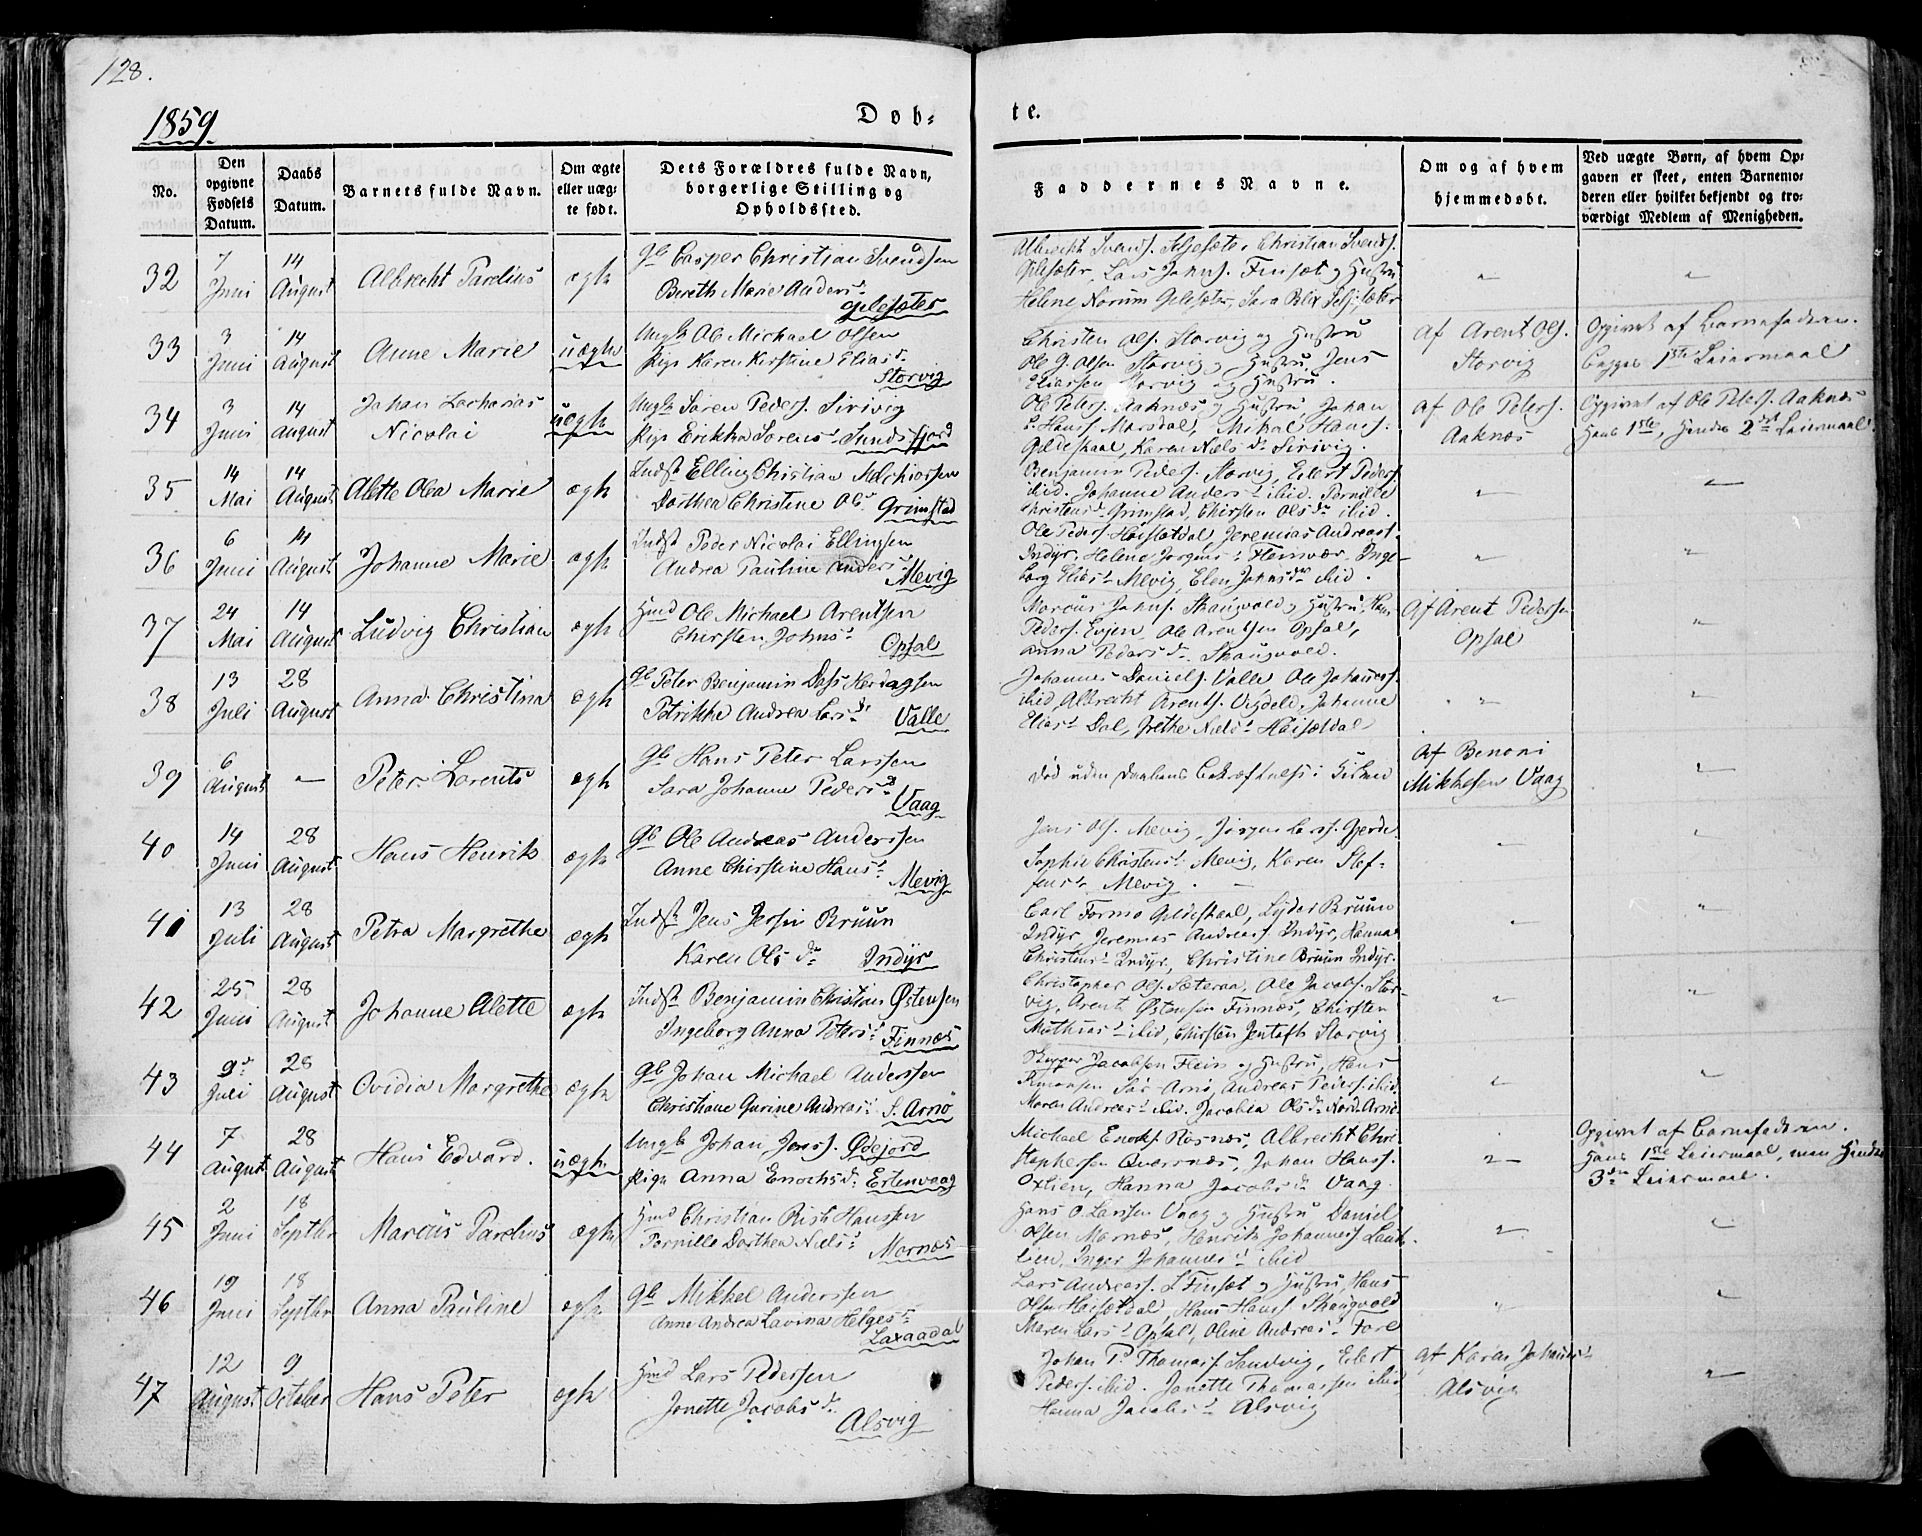 128.
1859.
Døb-
te.
No.
Den opgivne Fødsels Datum.
Daabs Datum.
Barnets fulde Navn.
Om ægte eller uægte født.
Dets Forældres fulde Navn, borgerlige Stilling og Opholdssted.
Faddernes Navne.
Om og af hvem hjemmedøbt.
Ved uægte Børn, af hvem Opgaven er skeet, enten Barnemoderen eller hvilket bekjendt og troværdigt Medlem af Menigheden.
32
7 Juni
14 August
Albrecht Parelius
ægte
Gb Casper Christian Svendsen
Bereth Marie Anders d.
Gilesæter
Albrecht Svends. Christian Svends.
Gilesæter, Lars Johns. Finsæt og Hustru
Helene Norum Gilesæter, Sara Blix
33
3 Juni
14 August
Anne Marie
uægte
Ungk Ole Michael Olsen
Pige Karen Kirstine Elias d.
Storvig
Christen Ols. Storvig og Hustru
Ole G. Olsen Storvig og Hustru, Jens
Eliassen Storvig og Hustru.
Af Arent Ols.
Storvig
Opgivet af Barnefaderen.
Begges 1ste Leiermaal
34
3 Juni
14 August
Johan Zacharias
Nicolai
uægte
Ungk Søren Peders. Sirivig
Pige Erikka Sørens d. Sundsfjord
Ole Peters. Aaknæs og Hustru Johan
Hans. Marsdal, Mikal Hans.
Gildeskaal, Karen Niels d. Sirivig.
Af Ole Peters.
Aaknæs
Opgivet af Ole Peters. Aaknæs
Hans 1ste, Hendes 2det Leiermaal.
35
14 Mai
14 August
Alette Olea Marie
ægte
Indst Elling Christian Melchiorsen
Dorthea Christine Ols d. Grimstad
Benjamin Peders. Storvig, Eilert Peders.
ibid. Johanne Anders d. ibid. Pernille
Christens d. Grimstad, Chirsten Ols d. ibid.
36
6 Juni
14 August
Johanne Marie
ægte
Indst Peder Nicolai Ellingsen
Andrea Pauline Anders d.
Mevig
Ole Peders. Høisletdal, Jeremias Andreas.
Indyr, Helene Jørgens d. Flemvær, Inge-
borg Elias d. Mevig, Elen Johns d. ibid.
37
24 Mai
14 August
Ludvig Christian
ægte
Hmd Ole Michael Arentsen
Chirsten Johns d.
Opsal
Marcus Johns. Skaugvold og Hustru, Hans
Peders. Evjen, Ole Arentsen Opsal,
Anna Peders d. Skaugvold.
Af Arent Pedersen
Opsal
38
13 Juli
28 August
Anna Christina
ægte
Gb Peter Benjamin Dass Herdagsen
Petrikke Andrea Lars d. Valle
Johannes Daniels. Valle Ole Johannes.
ibid, Albrecht Arents. Vigdel, Johanne
Elias d. Dal, Grethe Niels d. Høisætdal
39
6 August
Peter Lorents
ægte
Gb Hans Peter Larssen
Sara Johanne Peders d.
Vaag
Død uden Daabens Bekræftelse i Kirken
Af Benoni
Mikkelsen Vaag
40
14 Juni
28 August
Hans Henrik
ægte
Gb Ole Andreas Anderssen
Anne Chirstine Hans d.
Mevig
Jens Ols. Mevig, Jørgen Lars. Gjerde
Sophie Christens d. Mevig, Karen Stef-
fens d. Mevig.
41
13 Juli
28 August
Petra Margrethe
ægte
Indst Jens Jersin Bruun
Karen Ols d. Indyr
Carl Formo Gildeskaal, Lyder Bruun
Indyr Jeremias Andreas. Indyr, Hanna
Christens d. Indyr, Christine Bruun Indyr.
42
25 Juni
28 August
Johanne Alette
ægte
Indst Benjamin Christian Østensen
Ingeborg Anna Peters d. Finnæs
Christopher Ols. Sæteraa, Ole Jacobs. Stor-
vig, Arent Østensen Finnæs, Chirsten
Mathias d. ibid, Chirsten Jentoft Storvig
43
9 Juli
28 August
Ovidia Margrethe
ægte
Gb Johan Michael Anderssen
Christiane Gurine Andreas d. S. Arnø
Jacobsen Flein og Hustru, Hans
Sør Arnø, Andreas Peders. ibid.
Maren Andreas d. ibid. Jacobia Ols d. Nord. Arnø
44
7 August
28 August
Hans Edvard.
uægte
Ungk Johan Jens. Ødejord
Pige Anna Enochs d. Ertenvaag
Michael Enoks. Rosnæs, Albrecht Chri-
stophersen Qversnæs, Johan Hans.
Oxlien, Hanna Jacobs d. Vaag.
Opgivet af Barnefaderen.
Hans 1ste Leiermaal, men Hendes
3die Leiermaal.
45
2 Juni
18 Septbr
Marcus Parelius
ægte
Hmd Christian Rist Hanssen
Pernille Dorthea Niels d. Mornæs
Hans O. Larssen Vaag og Hustru Daniel
Olsen Mornæs, Henrik Johannes. Laut-
lien, Inger Johannes d. ibid
46
19 Juni
18 Septbr
Anna Pauline
ægte
Gb Mikkel Anderssen
Anne Andrea Lavina Helges d.
Laxaadal
Lars Andreas. Finsæt og Hustru, Hans
Olsen Høisætdal, Hans Hans. Skaugvold
Maren Lars d. Opsal, Oline Andreas d. Fore
47
12 August
9 October
Hans Peter
ægte
Hmd Lars Pedersen
Jonette Jacobs d.
Alsvig
Johan P. Thomas. Sandvig, Eilert
Peders. ibid. Jonette Thomassen ibid
Hanna Jacobs d. Alsvig
Af Karen Johannes d.
Alsvig